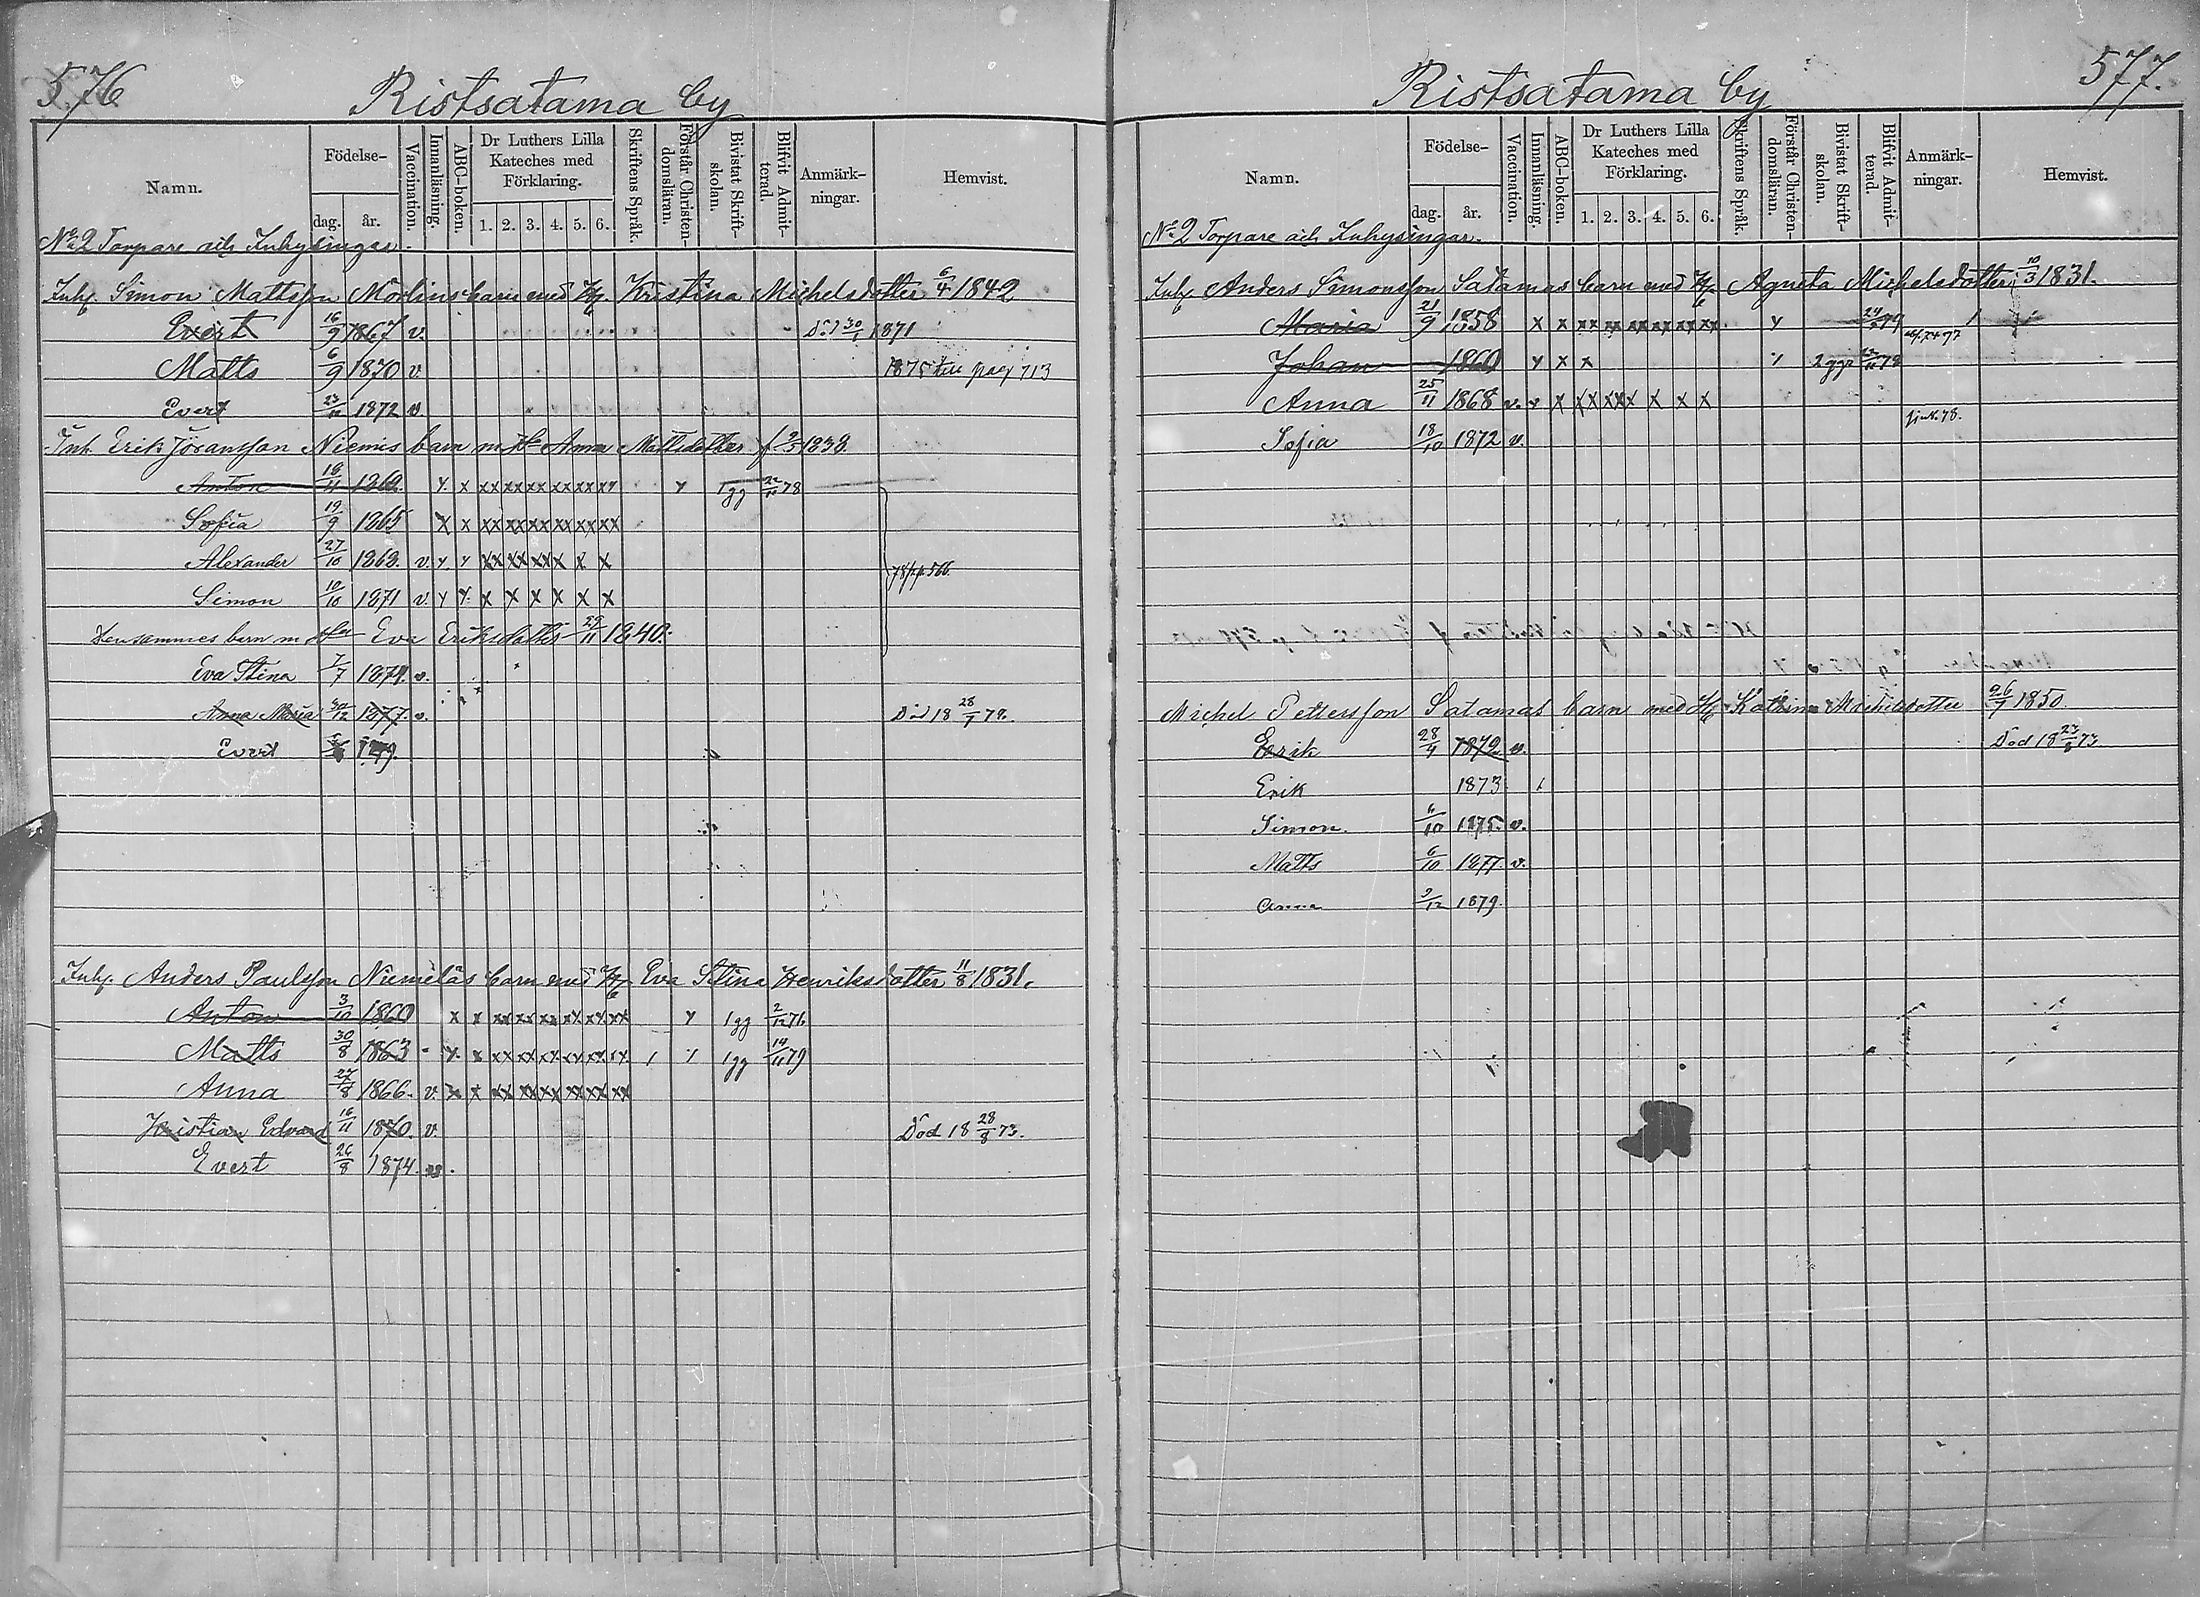 576
Ristsatama by
Namn.
Födelse-
dag. år.
Vaccination.
Innanläsning.
ABC-boken.
Dr Luthers Lilla
Kateches med
Förklaring.
1. 2. 3. 4. 5. 6.
Skriftens Språk.
Förstår Christen-
domsläran.
Bivistat Skrift-
skolan.
Blifvit Admit-
terad.
Anmärk-
ningar.
Hemvist.
No 2 Torpare och Inhysingar.
Inh. Simon Mattsson Mörlins barn med Kristina Michelsdotter 6/4 1842
Evert 16/9 1867 v. Död 30/1 1871
Matts 6/9 1870 v. 1875 till pag 713
Evert 1872 v.
Inh. Erik Göransson Niemis barn m Anna Mattsdotter 1838.
Anton x xx xx xx xx xx 1 gg 78
Sofia 19/9 1865 x x xx xx xx xx xx xx
Alexander 27/10 1868. v. xx xx xx x x x
Simon 10/10 1871 v. x x x x x x
78 p. 566.
Densammes barn m Eva Eriksdotter 1840.
Eva Stina 7/7 1874. v.
Anna Maria 30/12 1877. v. Död 18 28/7 78.
Evert 1879.
Inh. Anders Paulsson Niemeläs barn med Eva Stina Henriksdotter 11/8 1831.
Anton 3/10 1860 x x xx xx xx xx xx xx 1 gg 2/12 76
Matts 30/8 1863 x xx xx xx xx xx 1 gg 14/11 79
Anna 27/8 1866. v. x x xx xx xx xx xx xx
Kristian Edvard 16/11 1870. v. Död 18 28/8 73.
Evert 26/8 1874. v.
577.
Ristsatama by
Namn.
Födelse-
dag. år.
Vaccination.
Innanläsning.
ABC-boken.
Dr Luthers Lilla
Kateches med
Förklaring.
1. 2. 3. 4. 5. 6.
Skriftens Språk.
Förstår Christen-
domsläran.
Bivistat Skrift-
skolan.
Blifvit Admit-
terad.
Anmärk-
ningar.
Hemvist.
No 2 Torpare och Inhysingar.
Inh. Anders Simonsson Satamas barn med Agneta Michelsdotter 10/3 1831.
Maria 21/9 1858 x x xx xx xx xx xx xx
Johan 1860 x x x 2 ggr 78
Anna 25/11 1868 v. x x xx xx x x x
Sofia 18/10 1872 v.
Michel Pettersson Satamas barn med Katrina Michelsdotter 26/7 1850
Erik 28/4 1872 v. Död 18 23/8 73.
Erik 1873
Simon. 6/10 1875. v.
Matts 6/10 1877. v.
Anna 2/12 1879.